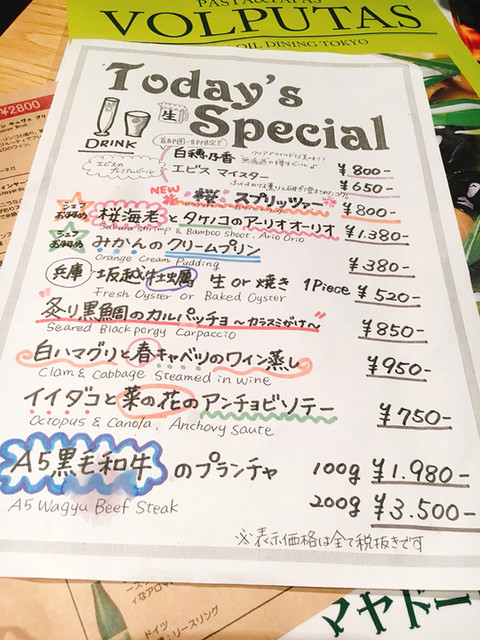 PASTA&TAPAS
VOLPUTAS
OIL DINING TOKYO
¥2800
Today's
Special
生
DRINK
白穂乃香 ¥800-
エビス マイスター ¥650-
NEW 桜 スプリッツァー ¥800-
シェフおすすめ 桜海老とタケノコのアーリオオーリオ ¥1.380-
Sakura shrimp & Bamboo shoot, Ario Orio
シェフおすすめ みかんのクリームプリン ¥380-
Orange Cream Pudding
兵庫 坂越牡蠣 生or焼き 1Piece ¥520-
Fresh Oyster or Baked Oyster
"炙り黒鯛のカルパッチョ〜カラスミがけ〜" ¥850-
Seared Black porgy Carpaccio
白ハマグリと春キャベツのワイン蒸し ¥950-
Clam & Cabbage steamed in wine
イイダコと菜の花のアンチョビソテー ¥750-
Octopus & Canola, Anchovy saute
A5黒毛和牛のプランチャ 100g ¥1.980-
200g ¥3.500-
A5 Wagyu Beef Steak
※表示価格は全て税抜きです
ドイツ
リースリング